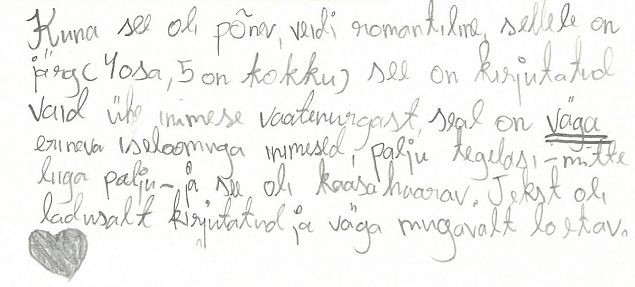 Kuna see oli põnev, veidi romantiline, sellele on
järg (4 osa, 5 on kokku) see on kirjutatud
vaid ühe inimese vaatenurgast, seal on väga
erineva iseloomuga inimesed, palju tegelasi - mitte
liiga palju - ja see oli kaasahaarav. Tekst oli
ladusalt kirjutatud ja väga mugavalt loetav.